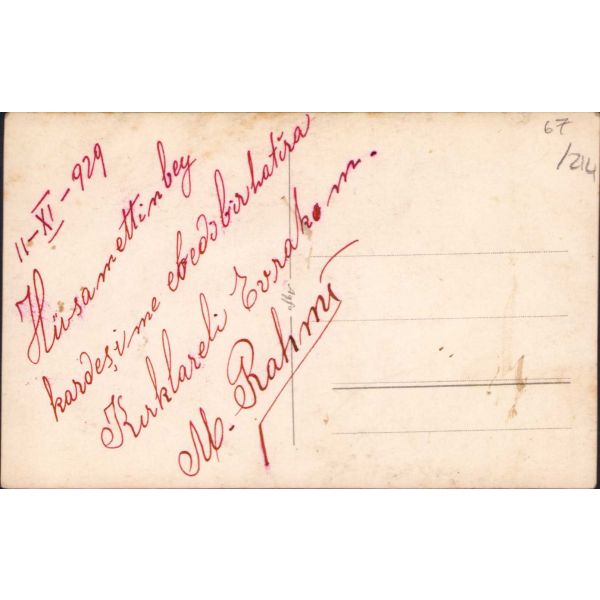 11-XI-929
Hüsamettin bey
kardeşime ebedî bir hatıra
Kırklareli Evrak m.
M. Rahmi
67
/214